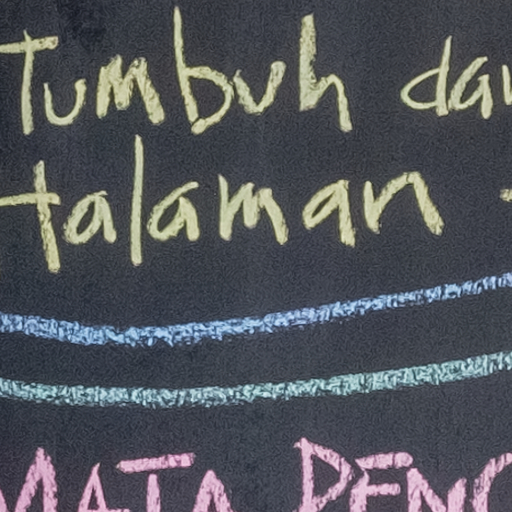 Tumbuh dan
talaman -
MATA PENG